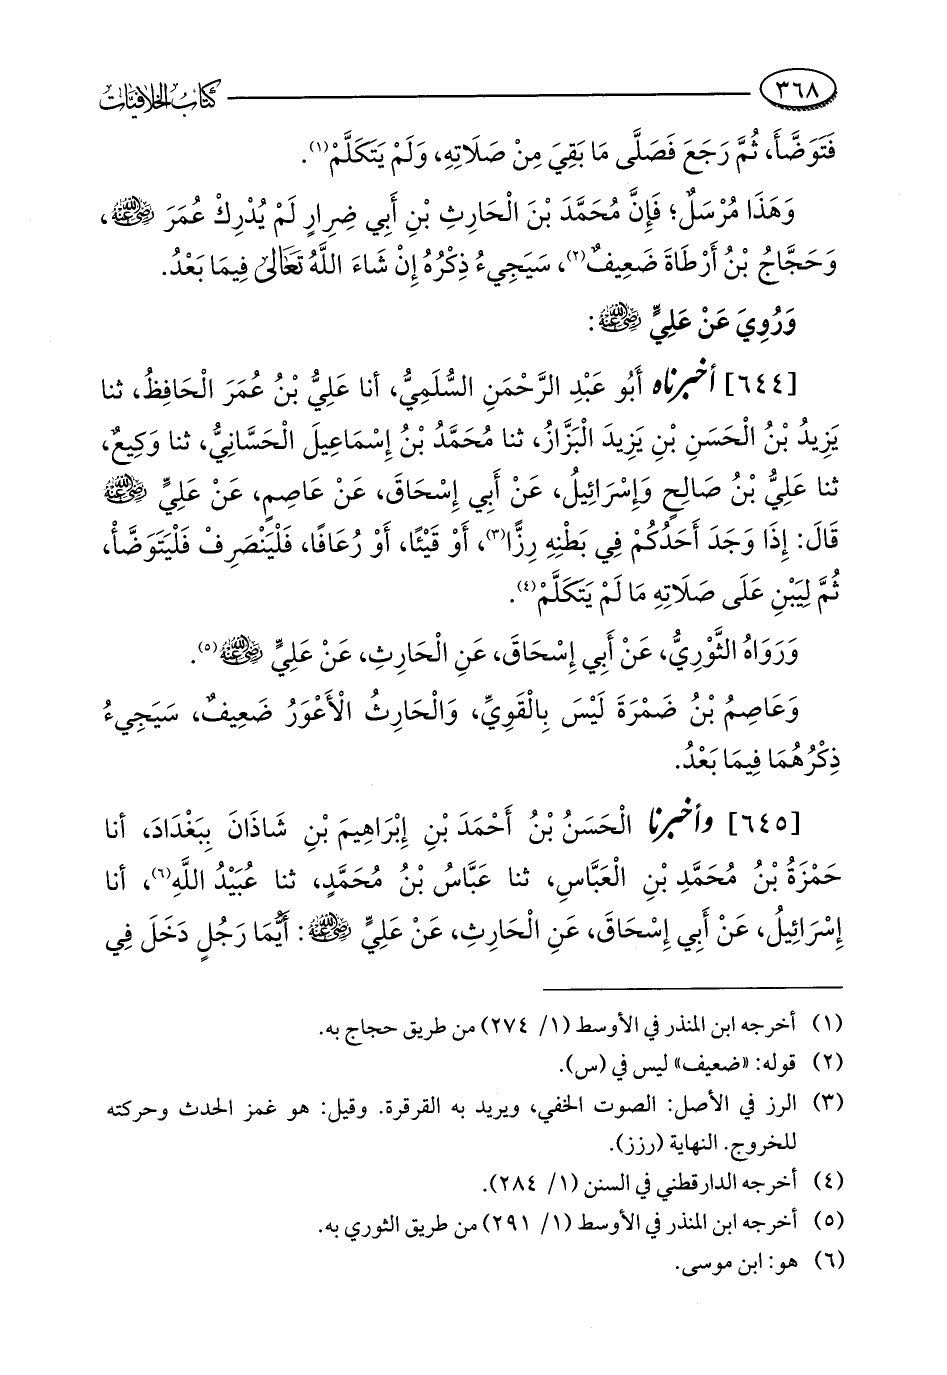 ٣٦٨ كتاب الخلافيات
فَتَوَضَّأَ، ثُمَّ رَجَعَ فَصَلَّى مَا بَقِيَ مِنْ صَلَاتِهِ، وَلَمْ يَتَكَلَّمْ(١).
وَهَذَا مُرْسَلٌ؛ فَإِنَّ مُحَمَّدَ بْنَ الْحَارِثِ بْنِ أَبِي ضِرَارٍ لَمْ يُدْرِكْ عُمَرَ رضي الله عنه،
وَحَجَّاجُ بْنُ أَرْطَاةَ ضَعِيفٌ(٢)، سَيَجِيءُ ذِكْرُهُ إِنْ شَاءَ اللَّهُ تَعَالَى فِيمَا بَعْدُ.
وَرُوِيَ عَنْ عَلِيٍّ رضي الله عنه:
[٦٤٤] أخبرناه أَبُو عَبْدِ الرَّحْمَنِ السُّلَمِيُّ، أنا عَلِيُّ بْنُ عُمَرَ الْحَافِظُ، ثنا
يَزِيدُ بْنُ الْحَسَنِ بْنِ يَزِيدَ الْبَزَّازُ، ثنا مُحَمَّدُ بْنُ إِسْمَاعِيلَ الْحَسَّانِيُّ، ثنا وَكِيعٌ،
ثنا عَلِيُّ بْنُ صَالِحٍ وَإِسْرَائِيلُ، عَنْ أَبِي إِسْحَاقَ، عَنْ عَاصِمٍ، عَنْ عَلِيٍّ رضي الله عنه
قَالَ: إِذَا وَجَدَ أَحَدُكُمْ فِي بَطْنِهِ رِزًّا(٣)، أَوْ قَيْئًا، أَوْ رُعَافًا، فَلْيَنْصَرِفْ فَلْيَتَوَضَّأْ،
ثُمَّ لِيَبْنِ عَلَى صَلَاتِهِ مَا لَمْ يَتَكَلَّمْ(٤).
وَرَوَاهُ الثَّوْرِيُّ، عَنْ أَبِي إِسْحَاقَ، عَنِ الْحَارِثِ، عَنْ عَلِيٍّ رضي الله عنه(٥).
وَعَاصِمُ بْنُ ضَمْرَةَ لَيْسَ بِالْقَوِيِّ، وَالْحَارِثُ الْأَعْوَرُ ضَعِيفٌ، سَيَجِيءُ
ذِكْرُهُمَا فِيمَا بَعْدُ.
[٦٤٥] وأخبرنا الْحَسَنُ بْنُ أَحْمَدَ بْنِ إِبْرَاهِيمَ بْنِ شَاذَانَ بِبَغْدَادَ، أنا
حَمْزَةُ بْنُ مُحَمَّدِ بْنِ الْعَبَّاسِ، ثنا عَبَّاسُ بْنُ مُحَمَّدٍ، ثنا عُبَيْدُ اللَّهِ(٦)، أنا
إِسْرَائِيلُ، عَنْ أَبِي إِسْحَاقَ، عَنِ الْحَارِثِ، عَنْ عَلِيٍّ رضي الله عنه: أَيُّمَا رَجُلٍ دَخَلَ فِي
(١) أخرجه ابن المنذر في الأوسط (١/ ٢٧٤) من طريق حجاج به.
(٢) قوله: «ضعيف» ليس في (س).
(٣) الرز في الأصل: الصوت الخفي، ويريد به القرقرة. وقيل: هو غمز الحدث وحركته
للخروج. النهاية (رزز).
(٤) أخرجه الدارقطني في السنن (١/ ٢٨٤).
(٥) أخرجه ابن المنذر في الأوسط (١/ ٢٩١) من طريق الثوري به.
(٦) هو: ابن موسى.